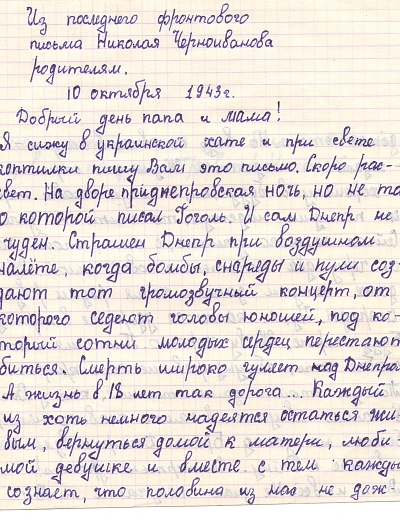 Из последнего фронтового
письма Николая Черноиванова
родителям.
10 октября 1943г.
Добрый день папа и мама!
Я сижу в украинской хате и при свете
коптилки пишу Вам это письмо. Скоро рас-
свет. На дворе приднепровская ночь, но не та
о которой писал Гоголь. И сам Днепр не
чуден. Страшен Днепр при воздушном
налёте, когда бомбы, снаряды и пули соз-
дают тот громозвучный концерт, от
которого седеют головы юношей, под ко-
торый сотни молодых сердец перестают
биться. Смерть широко гуляет над Днепро
А жизнь в 18 лет так дорога... Каждый
из хоть немного надеятся остаться жи-
вым, вернуться домой к матери, люби-
мой девушке и вместе с тем кажды
сознает, что половина из нас не дож-